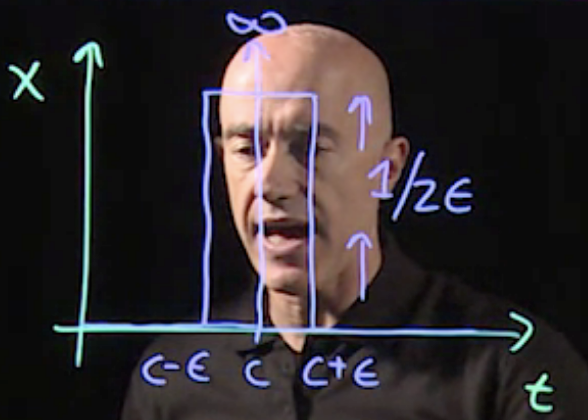 ∞
x
1/2ϵ
c-ϵ c c+ϵ
t